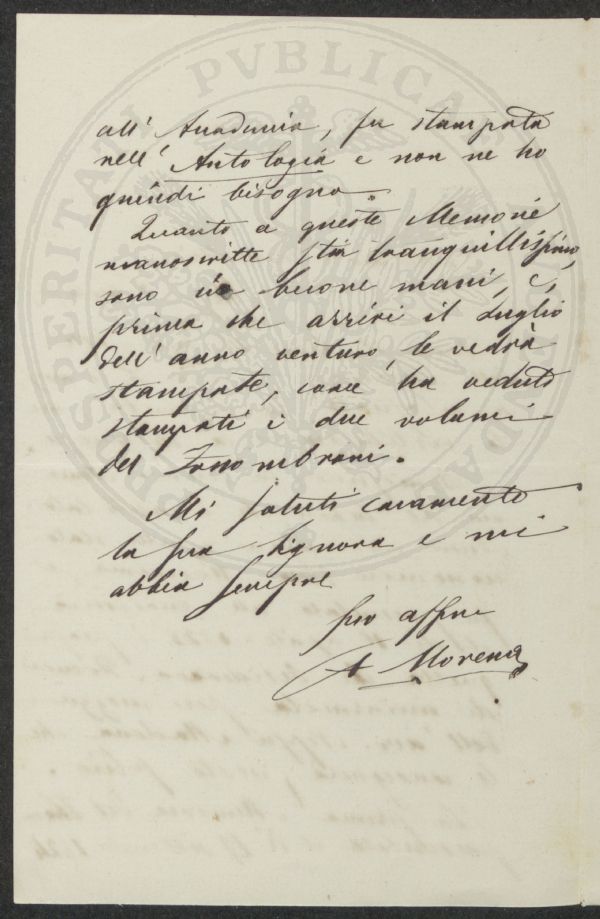 all' Accademia, fu stampata
nell' Antologia e non ne ho
quindi bisogno.
Quanto a queste Memorie
manoscritte stia tranquillissimo,
sono in buone mani, e,
prima che arrivi il Luglio
dell' anno venturo, le vedrà
stampate, come ha veduto
stampati i due volumi
del Fossombroni.
Mi saluti caramente
la sua Signora e mi
abbia sempre
suo affmo
A Morena
PROSPERITATI PVBLICAE